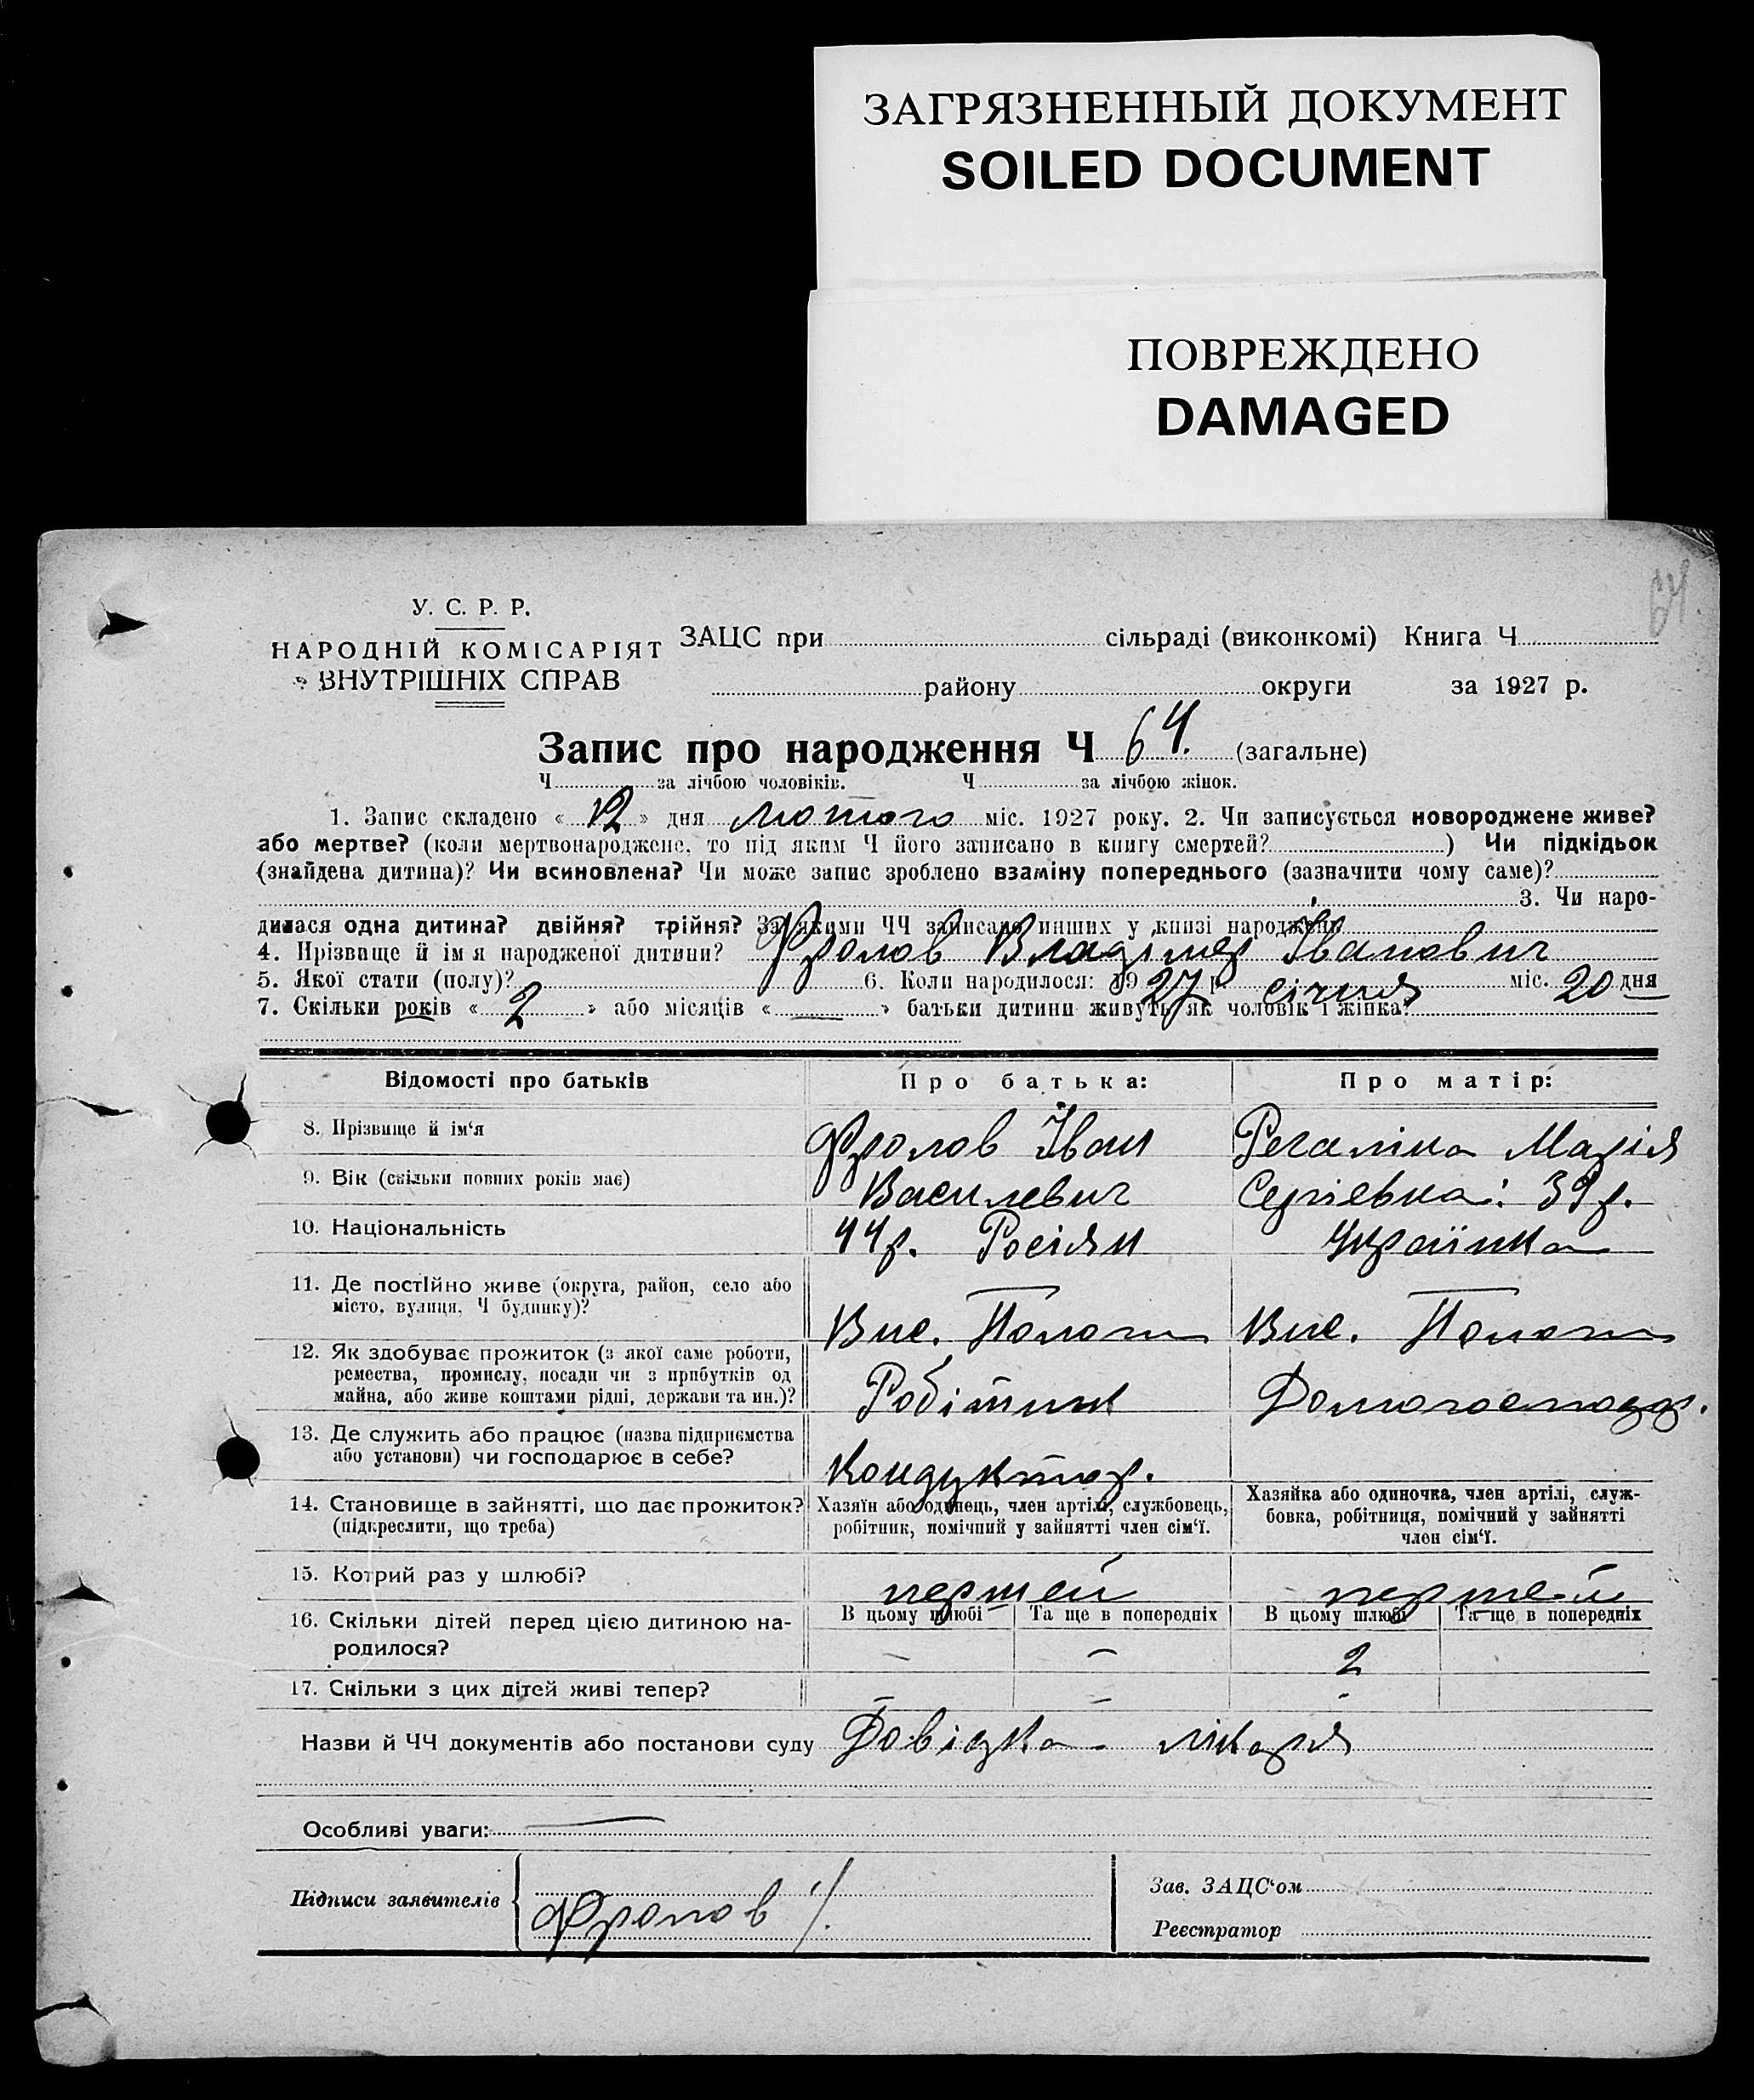 ЗАГРЯЗНЕННЫЙ ДОКУМЕНТ
SOILED DOCUMENT
ПОВРЕЖДЕНО
DAMAGED
64.
У. С. Р. Р.
НАРОДНІЙ КОМІСАРІЯТ
ВНУТРІШНІХ СПРАВ
ЗАЦС при сільраді (виконкомі) Книга Ч
району округи за 1927 р.
Запис про народження Ч 64. (загальне)
Ч за лічбою чоловіків. Ч за лічбою жінок.
1. Запис складено « 12 » дня лютого міс. 1927 року. 2. Чи записується новороджене живе?
або мертве? (коли мертвонароджене, то під яким Ч його записано в книгу смертей? ) Чи підкідьок
(знайдена дитина)? Чи всиновлена? Чи може запис зроблено взаміну попереднього (зазначити чому саме)?
3. Чи наро-
дилася одна дитина? двійня? трійня? За якими ЧЧ записано инших у книзі народжень
4. Прізвище й ім я народженої дитини? Фролов Владімер Іванович
5. Якої стати (полу)? 6. Коли народилося: 1927 р. січня міс. 20 дня
7. Скільки років « 2 » або місяців « — » батьки дитини живуть як чоловік і жінка?
Відомості про батьків Про батька: Про матір:
8. Прізвище й ім‘я Фролов Іван Марія
9. Вік (скільки повних років має) Василевич Сергієвна: 39 р.
10. Національність 44 р. Росіян Українка
11. Де постійно живе (округа, район, село або
місто, вулиця, Ч будинку)? Вис. Пологи Вис. Пологи
12. Як здобуває прожиток (з якої саме роботи,
ремества, промислу, посади чи з прибутків од
майна, або живе коштами рідні, держави та ин.)? Робітник Домогосподар.
13. Де служить або працює (назва підприємства
або установи) чи господарює в себе? Кондуктор.
14. Становище в зайнятті, що дає прожиток?
(підкреслити, що треба)
Хазяїн або одинець, член артілі, службовець,
робітник, помічний у зайнятті член сім‘ї.
Хазяйка або одиночка, член артілі, служ-
бовка, робітниця, помічний у зайнятті
член сім‘ї.
15. Котрий раз у шлюбі? першей першей
16. Скільки дітей перед цією дитиною на-
родилося?
В цьому шлюбі Та ще в попередніх В цьому шлюбі Та ще в попередніх
– – 2
17. Скільки з цих дітей живі тепер? – – -
Назви й ЧЧ документів або постанови суду Довідка лікаря
Особливі уваги: —
Підписи заявителів Фролов
Зав. ЗАЦС‘ом
Реєстратор